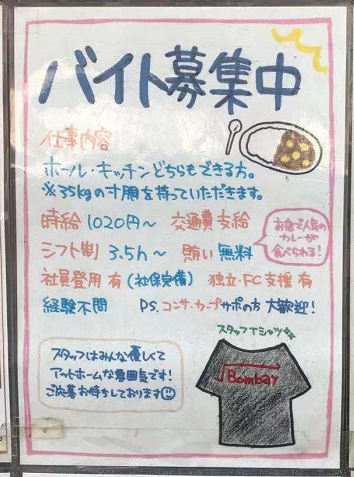 バイト募集中
仕事内容
ホール・キッチンどちらもできる方。
※35kgの寸胴を持っていただきます。
時給 1020円〜 交通費支給
シフト制 3.5h〜 賄い 無料
お店で人気の
カレーが
食べられる!
社員登用 有(社保完備) 独立・FC支援 有
経験不問 P.S. コンサ・カープサポの方 大歓迎!
スタッフTシャツ
Bombay
スタッフはみんな優しくて
アットホームな雰囲気です!
ご応募お待ちしております